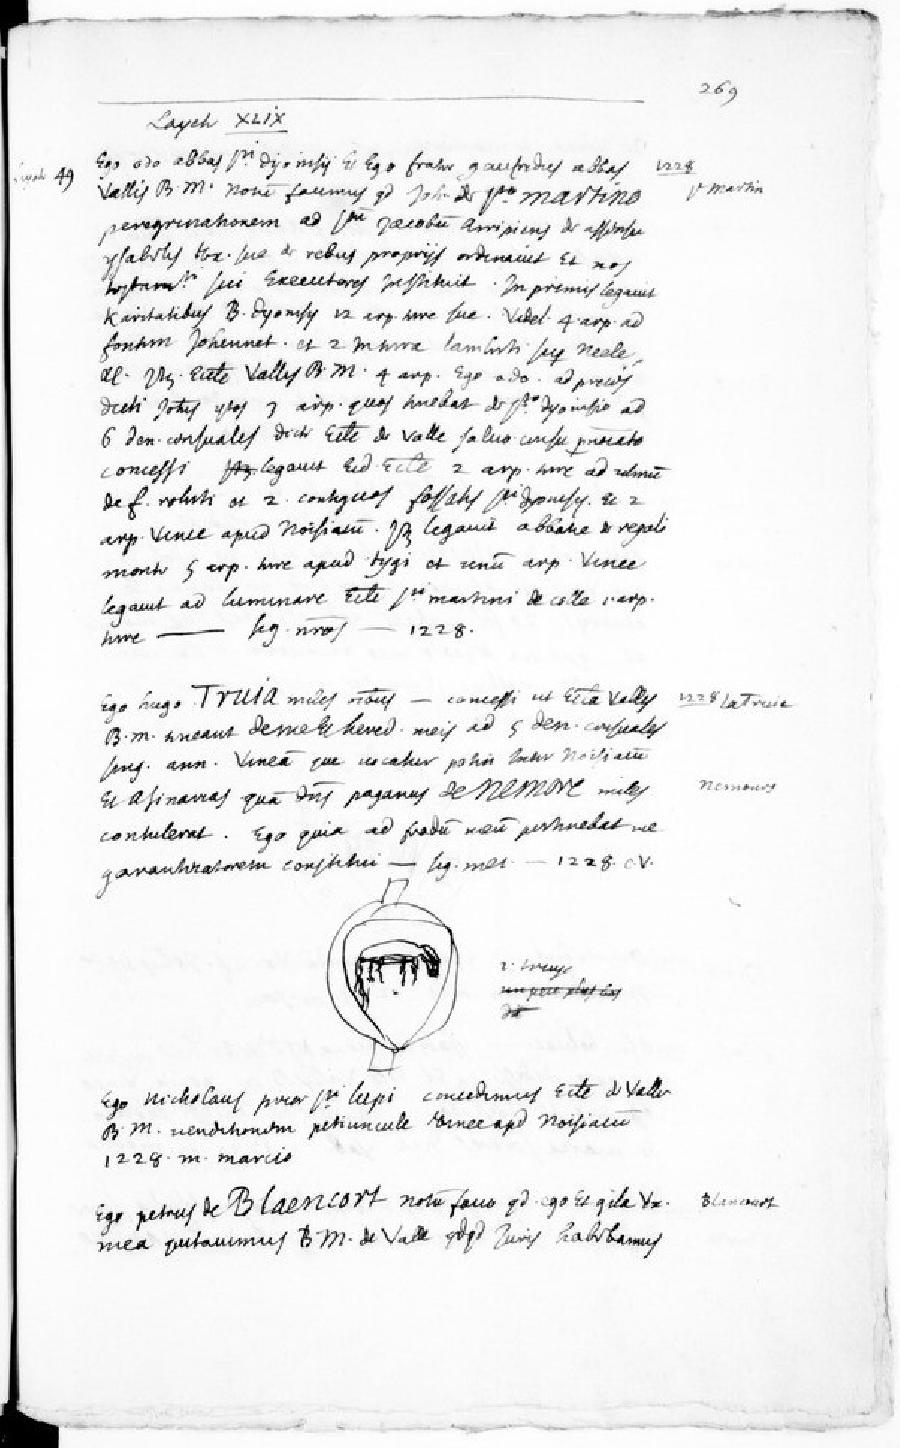 269
Layeh XLIX
49 Ego odo abbas sti dyonisij Et Ego frater gaufridus abbas 1228
Vallis B. M. notū facimus qd Joh. de sto martino st Martin
peregrinationem ad stū Jacobū arripiens de assensu
ysabelis Vx. sue de rebus proprijs ordinavit Et nos
testamti sui Executores Instituit . In primis legavit
Karitatibus B. dyonisij 12 arp. terre sue. Videl. 4 arp. ad
fontem Johennet. et 2 Inter
Ecclē Vallis B. M. 4 arp. Ego odo. ad preces
dicti Johis 3 arp. quos tenebat de sto dyonisio ad
6 den. censuales dicte Ecclē de Valle salvo censu
concessi legavit Eid. Ecclē 2 arp. terre ad
de f. et 2. contiguos fossatis sti dyonisij. Et 2
arp. Vinee apud Noisiacū. legavit abbatie de regali
monte 5 arp. terre apud et unū arp. Vinee
legavit ad luminare Ecclē sti martini de colle 1. arp.
terre — sig. nros — 1228.
Ego hugo Truia miles — concessi ut Ecclā Vallis 1228 La Truie
B. M. teneant de me Et hered. meis ad 5 den. censuales
sing. ann. Vineā que vocatur inter Noisiacū
Et Asinarias quā dns paganus de Nemore miles Nemours
contulerat . Ego quia ad feodū meū pertinebat me
garantizatorem constitui — sig. meo — 1228. c.V.
1. truye
Ego Nicholaus prior sti lupi concedimus Ecclē de Valle
B. M. venditionem petiuncule Vinee apd Noisiacū
1228. m. marcio
Ego petrus de Blaencort notū facio qd. ego Et gila Vx. Blancourt
mea quitavimus B M. de Valle qdqd Juris habebamus